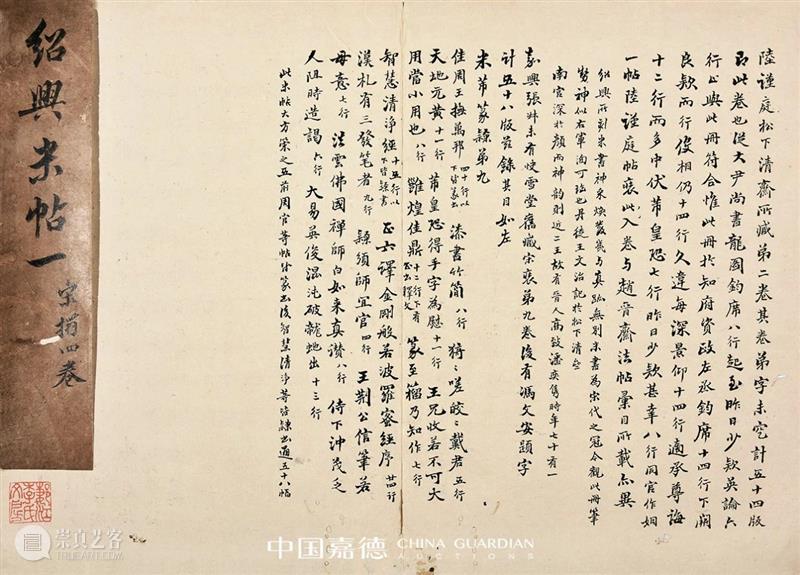 陸謹庭松下清齋所藏第二卷其卷弟字未定計五十四版
即此卷也從大尹尚書龍圖鈞席八行起至昨日少款英論六
行止與此冊符合惟此冊於知府資政左丞鈞席十四行下闕
良款兩行俊相仍十四行久違每深景仰十四行適承尊誨
十二行而多中伏芾皇恐七行昨日少款甚幸八行同官作姻
一帖陸謹庭帖裏此入卷与趙晉齋法帖彙目所載亦異
紹興所刻米書神采煥發幾与真跡無別米書為宋代之冠今觀此冊筆
勢神似右軍洵可珍也丹徒王文治記於松下清齋
南宮深於顏而神韵則近二王故有晉人高致潘奕雋時年七十有一
嘉興張叔未有快雪堂舊藏宋裱第九卷後有馮文安題字
計五十八版並錄其目如左
米芾篆隸第九
佳周王撫萬邦 四十行以下皆篆書 漆書竹簡 八行 猗猗嗟皎皎戴君 五行
天地元黃 十一行 芾皇恐得手字為慰 十一行 王兄收若不可大
用當小用也 八行 雝煌佳鼎 十二行下有正書釋文 篆至籀乃知作 七行
智慧清淨經 十五行以下皆隸書 正六譯金剛般若波羅蜜經序 廿四行
漢札有三發笔者 九行 隸須師宜官 四行 王荊公信筆若
毋意 七行 法雲佛國禪師白如來真讚 八行 侍下沖茂乏
人阻時造謁 六行 大易英俊混沌破龍虵出 十三行
此米帖大方

紹興米帖一
宋搨四卷
崇真艺客
中国嘉德 CHINA GUARDIAN
AUCTIONS